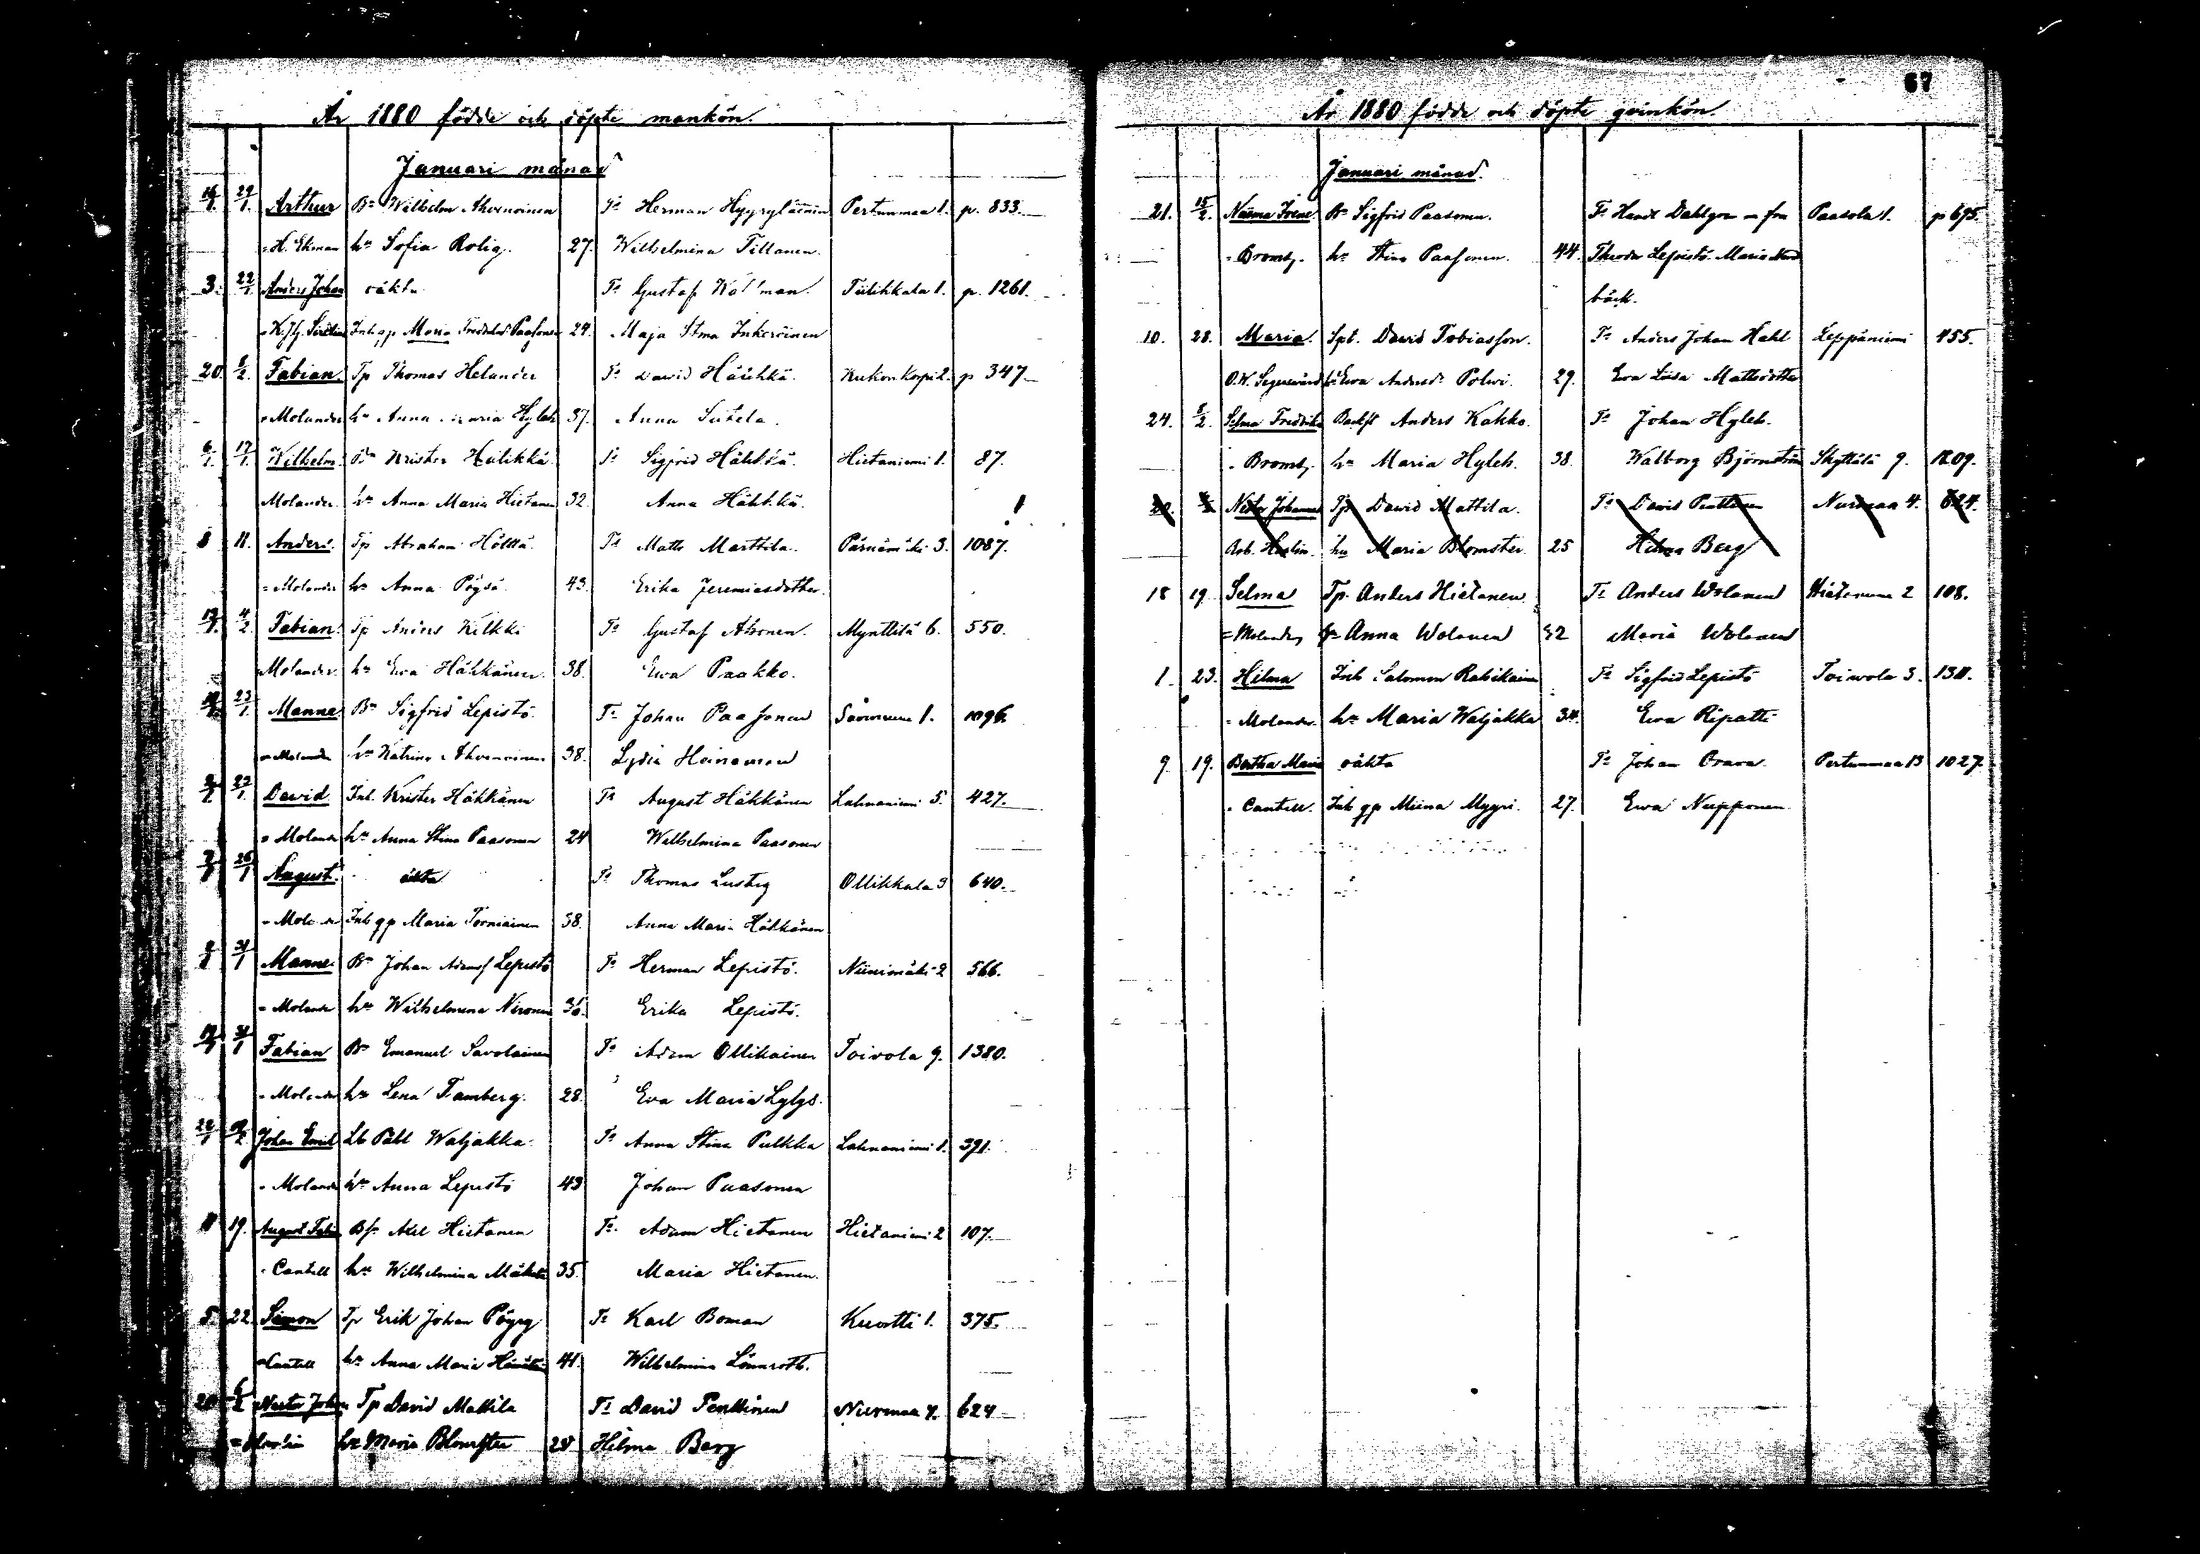 År 1880 födde och döpte mankön.
Januari månad
16/1. 29/1. Arthur Bn Wilhelm Ahvenoinen Ts Herman Hyyryläinen Pertunmaa 1. p. 833.
= H. Ekman hu Sofia Rolig. 27. Wilhelmina Tillanen.
3. 22/1. Anders Johan oäkta Ts Gustaf Tulihkala 1. p. 1261.
Inh. qp Maria Fredriksd. Paasonen 24. Maja Stina Inkeroinen
20. 8/2. Fabian. Tp Thomas Helander Ts David Häihkä. Kukonkorpi 2. p 347
= Molander hu Anna Maria Hyleh 37. Anna Sutela.
6/1. 17/1. Wilhelm. Bn Krister Halikka. Ts Sigfrid Hähkkä. Hietaniemi 1. 87.
Molander. hu Anna Maria Hietanen 32. Anna Hähkkä.
8 11. Anders. Tp Abraham Hölttä. Ts Matts Marttila. Pärnämäki 3. 1087.
= Molander hu Anna Pöysä 43. Erika Jeremiasdotter.
13/1. 4/2. Fabian. Tp Anders Kilkki Ts Gustaf Ahonen. Mynttilä 6. 550.
Molander. hu Ewa Häkkänen. 38. Ewa Paakko.
23/1. Manne Bn Sigfrid Lepistö. Ts Johan Paasonen 1. 1096.
= Molander hu Katrina Ahvenoinen 38. Lydia Heinonen
22/1. David Inh. Krister Häkkänen Ts August Häkkänen Lahnaniemi 5. 427.
= Molander hu Anna Stina Paasonen 24 Wilhelmina Paasonen
7/1 26/1 August. äkta Ts Thomas Lustig Ollikkala 3 640.
= Molander Inh qp Maria Torniainen 38. Anna Maria Häkkänen
31/1 Manne. Bn Johan Adamsf Lepistö Ts Herman Lepistö. Niinimäki 2 566.
= Molander hu Wilhelmina Nironen 36. Erika Lepistö.
19/1 31/1 Fabian Bn Emanuel Savolainen Ts Adam Ollikainen Toivola 9. 1380.
= Molander hu Lena Tamberg. 28. Eva Maria Lylys.
Johan Emil Lb Påhl Waljakka. Ts Anna Stina Pulkka Lahnaniemi 1. 391.
= Molander hu Anna Lepistö 43 Johan Paasonen
11 19. August Bf. Axel Hietanen Ts. Adam Hietanen Hietaniemi 2 107.
= Cantell hu Wilhelmina 35. Maria Hietanen.
5. 22. Simon Tp Erik Johan Pöyry Ts Karl Boman Kuortti 1. 375.
= Cantell hu Anna Maria 41. Wilhelmina Lönnroth.
20 6/2 Nestor Johan Tp David Mattila Ts David Penttinen Nurmaa 4. 624
= Hoslin hu Maria Blomster 25 Hilma Berg
67
År 1880 födde och döpte qvinkön.
Januari månad.
21. 15/2. Naima Irene Bn Sigfrid Paasonen. Ts Handl Dahlgren m fru Paasola 1. p 675.
= Bromby. hu Stina Paasonen. 44 Theodor Lepistö. Maria Nord
bäck.
10. 28. Maria. Spt. David Tobiasson. Ts Anders Johan Hahl Leppäniemi 455.
Ewa Andersd. Polwi. 29. Eva Lovisa Mattsdotter
24. 8/2. Selma Fredrika Anders Kakko. Ts Johan Hyleh.
= Bromby. hu Maria Hyleh. 38. Walborg Björnström Skyttälä 9. 1209.
20. 6/2 Nestor Johannes Tp David Mattila. Ts David Penttinen Nurmaa 4. 624.
Rob. Hoslin. hu Maria Blomster. 25 Hilma Berg
18 19. Selma Tp. Anders Hietanen Ts Anders Wolanen Hietaniemi 2 108.
= Molander hu Anna Wolanen 32 Maria Wolanen
1. 23. Hilma Inh Salomon Rahikainen Ts Sigfrid Lepistö Toiwola 3. 1311.
= Molander. hu Maria Waljakka 34. Ewa Ripatti
9. 19. Bertha Maria oäkta Ts Johan Orava. Pertunmaa 13 1027.
= Cantell. Inh qp Miina Myyri. 27. Ewa Nupponen